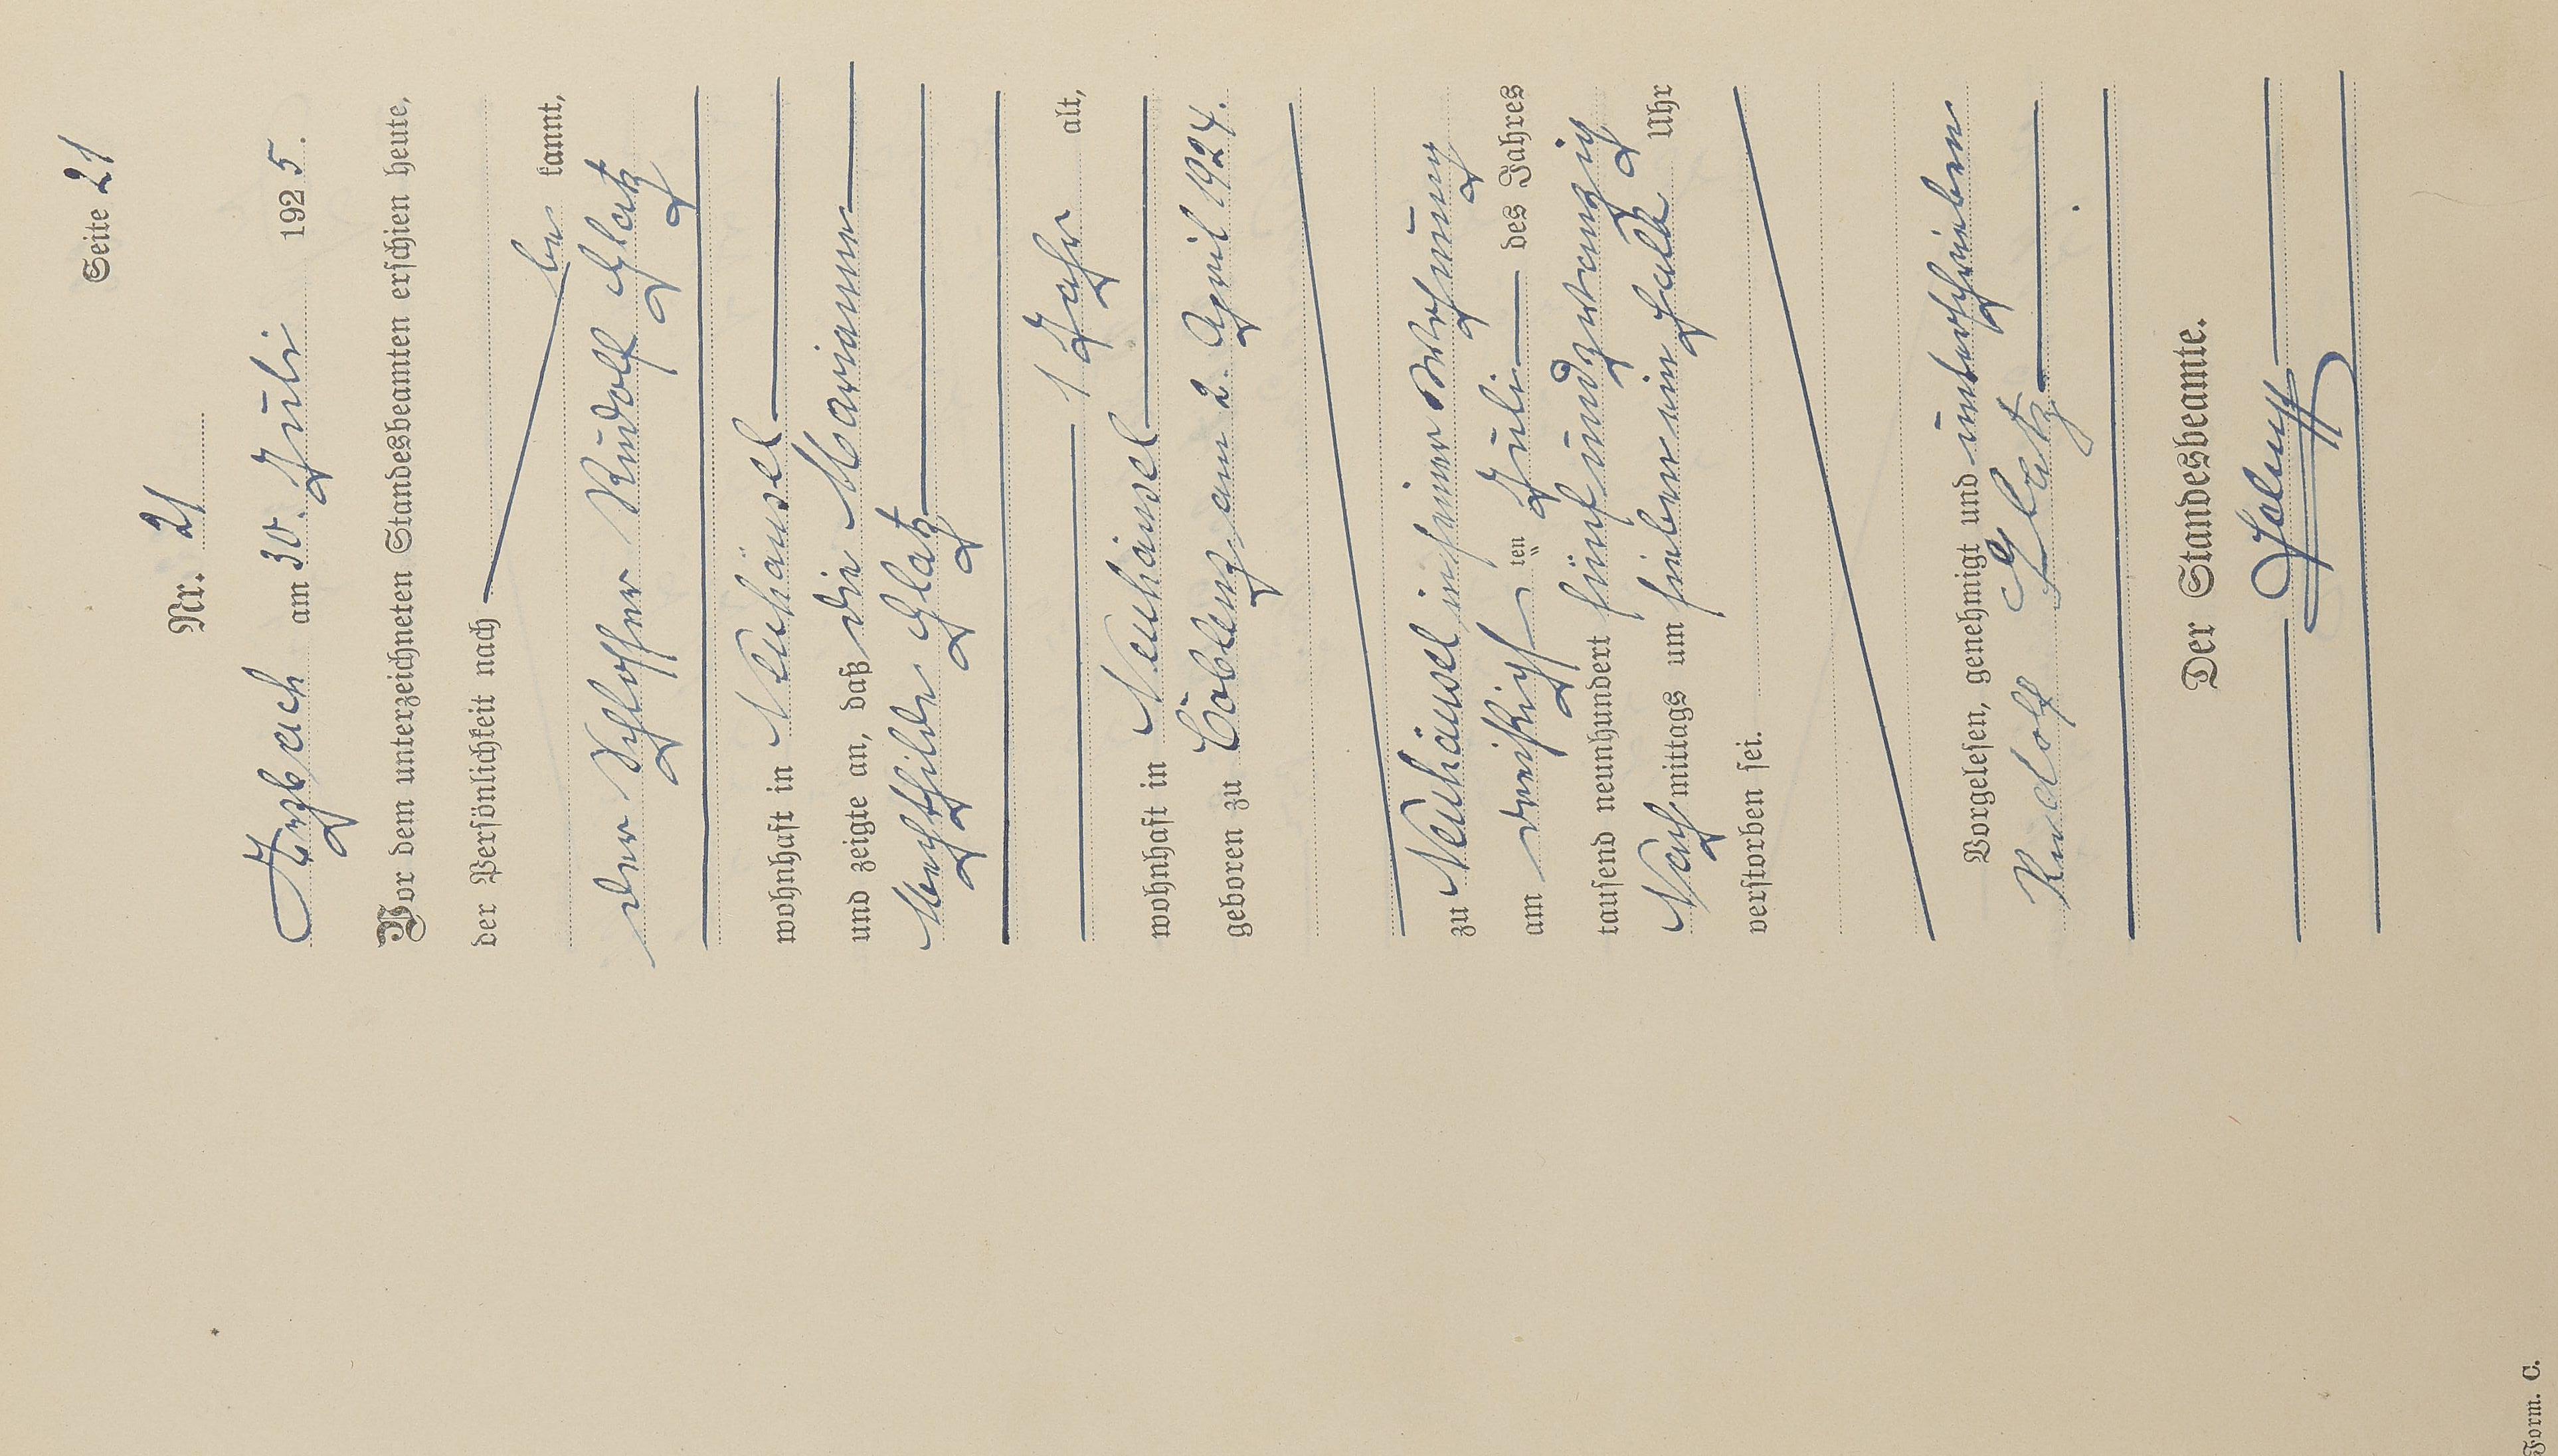 Seite 21
Nr. 21
Arzbach am 30. Juli 1925.
Vor dem unterzeichneten Standesbeamten erschien heute,
der Persönlichkeit nach
be kannt,
der Schlosser Rudolf Glatz
wohnhaft in Neuhäusel
und zeigte an, daß die Marianne
Mechthilde Glatz
1 Jahr alt,
wohnhaft in Neuhäusel
geboren zu Coblenz am 2. April 1924.
zu Neuhäusel in seiner Wohnung
am dreißigsten Juli des Jahres
tausend neunhundert fünfundzwanzig
Nachmittags um sieben ein halb Uhr
verstorben sei.
Vorgelesen, genehmigt und unterschrieben
Rudolf Glatz
Der Standesbeamte.
Form. C.